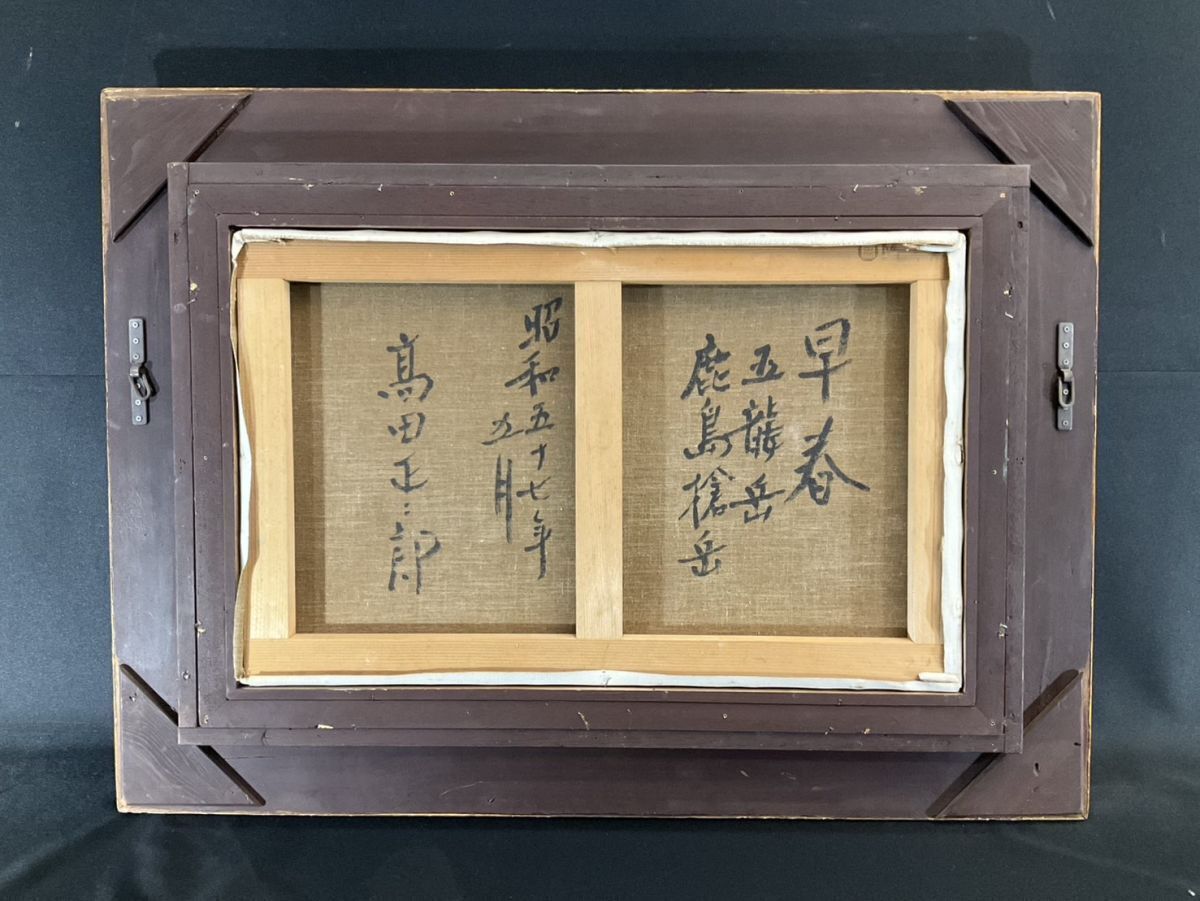 早春
五龍岳
鹿島槍岳
昭和五十七年
五月
髙田正二郎